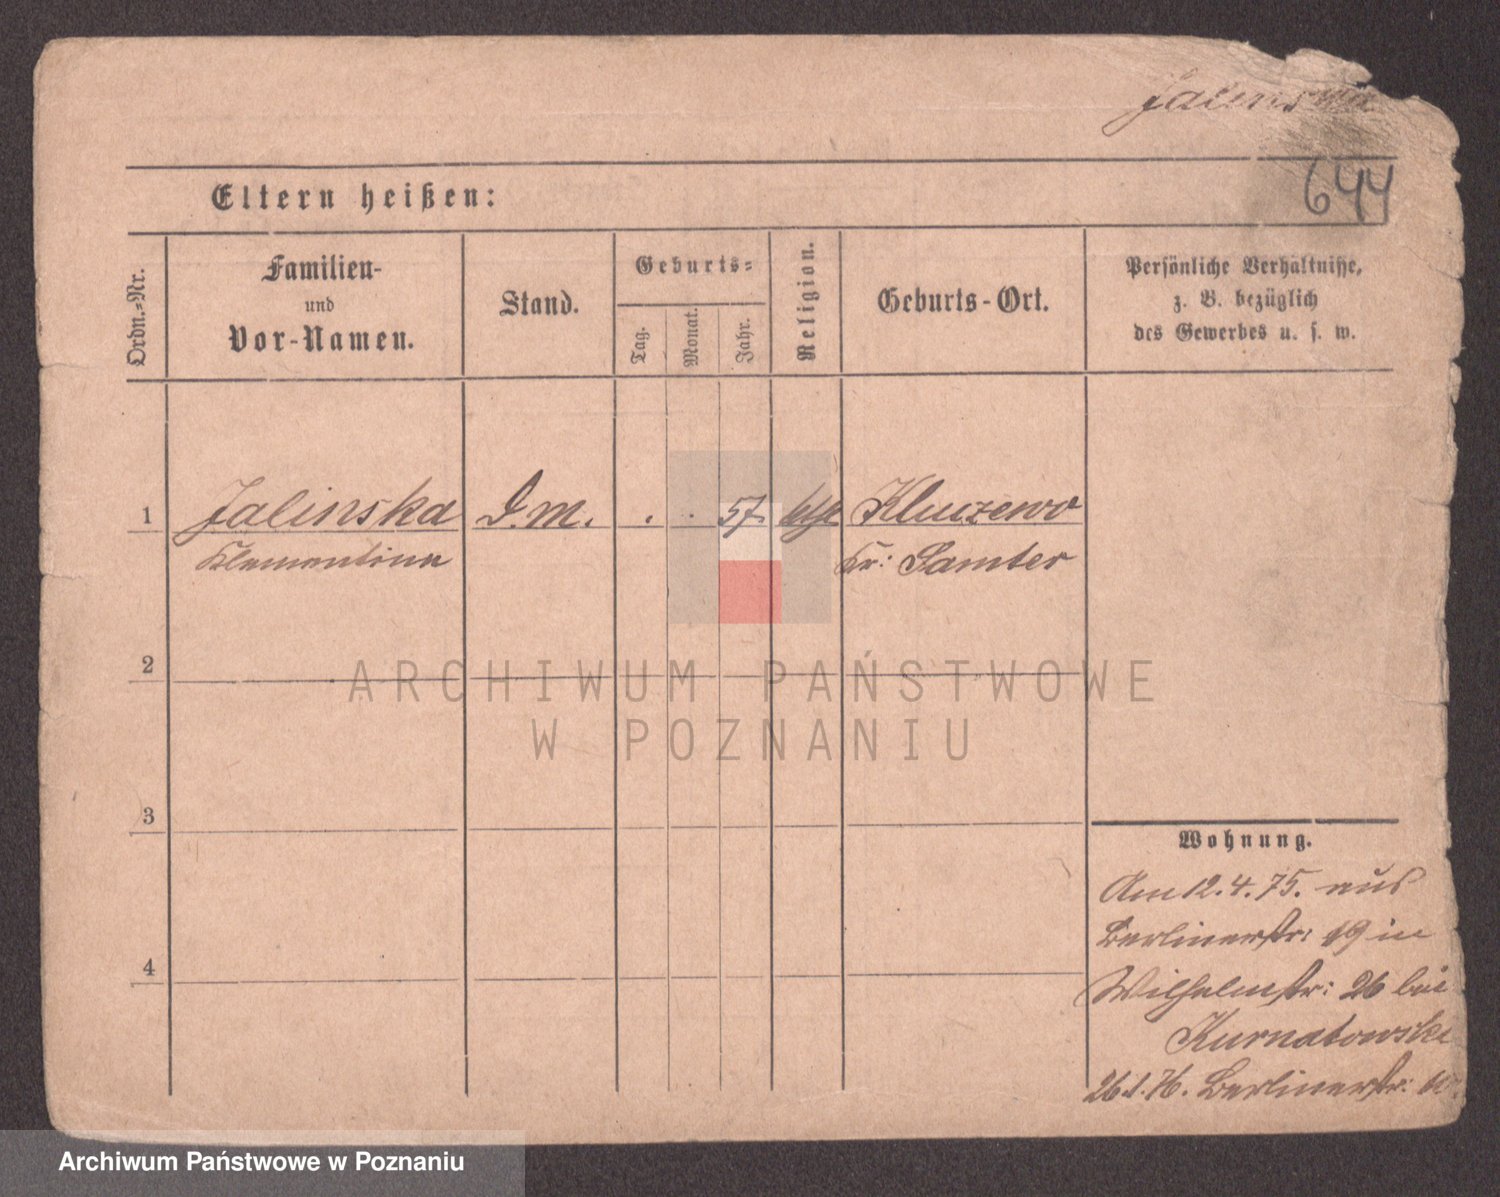 Jalinska
644
Eltern heißen:
Ordn.-Nr.
Familien-
und
Vor-Namen.
Stand.
Geburts-
Tag.
Monat.
Jahr.
Religion.
Geburts-Ort.
Persönliche Verhältnisse,
z. B. bezüglich
des Gewerbes u. s. w.
1 Jalinska D.M. . . 57. Kluczewo
Klementina Kr: Samter
2
ARCHIWUM PAŃSTWOWE
W POZNANIU
3
Wohnung.
Am 12.4.75. aus
Berlinerstr: 19 in
4
Wilhelmstr: 26 bei
Kurnatowski
26.1.76. Berlinerstr:
Archiwum Państwowe w Poznaniu